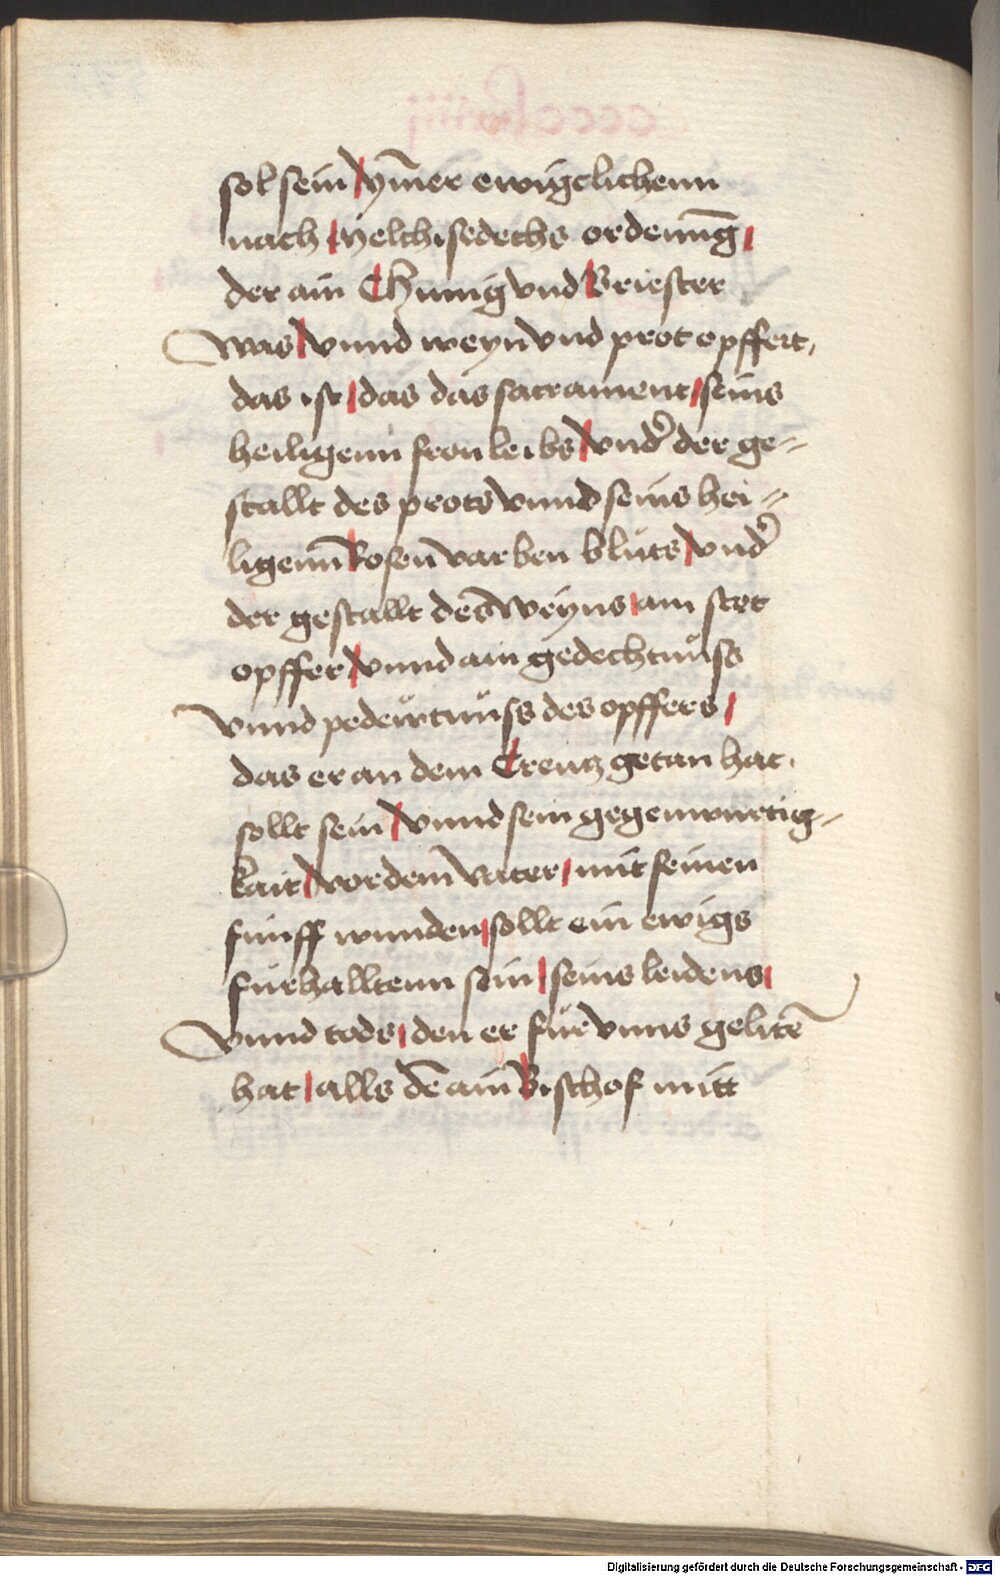 sol sein / ym̄er ewigclichenn
nach / Melchisedechs ordenūg /
der ain Chunig vnd Briester
was / vnnd weyn vnd prot opffert,
das ist / das das sacrament / seins
heiligenn fronleibs / vnd̾ der ge=
stallt des prots vnnd seins hei=
ligenn̄ Rosen̄varben bluͦts / vnd̾
der gestallt des Weyns / ain stet
opffer / vnnd ain gedechtnuͤss
vnnd pedeuͤrtnuͤss des opffers /
das er an dem Creutz getan hat.
sollt sein / vnnd sein gegenwurtig=
kait / vor dem̄ vater / mit seinen
funff wunden / sollt ein ewigs
fuͤrhalltenn sein / seins leidens /
vnnd tods / den er fuͤr vnns gelitē
hat / alls dē ain Bischof mitt
Digitalisierung gefördert durch die Deutsche Forschungsgemeinschaft - DFG